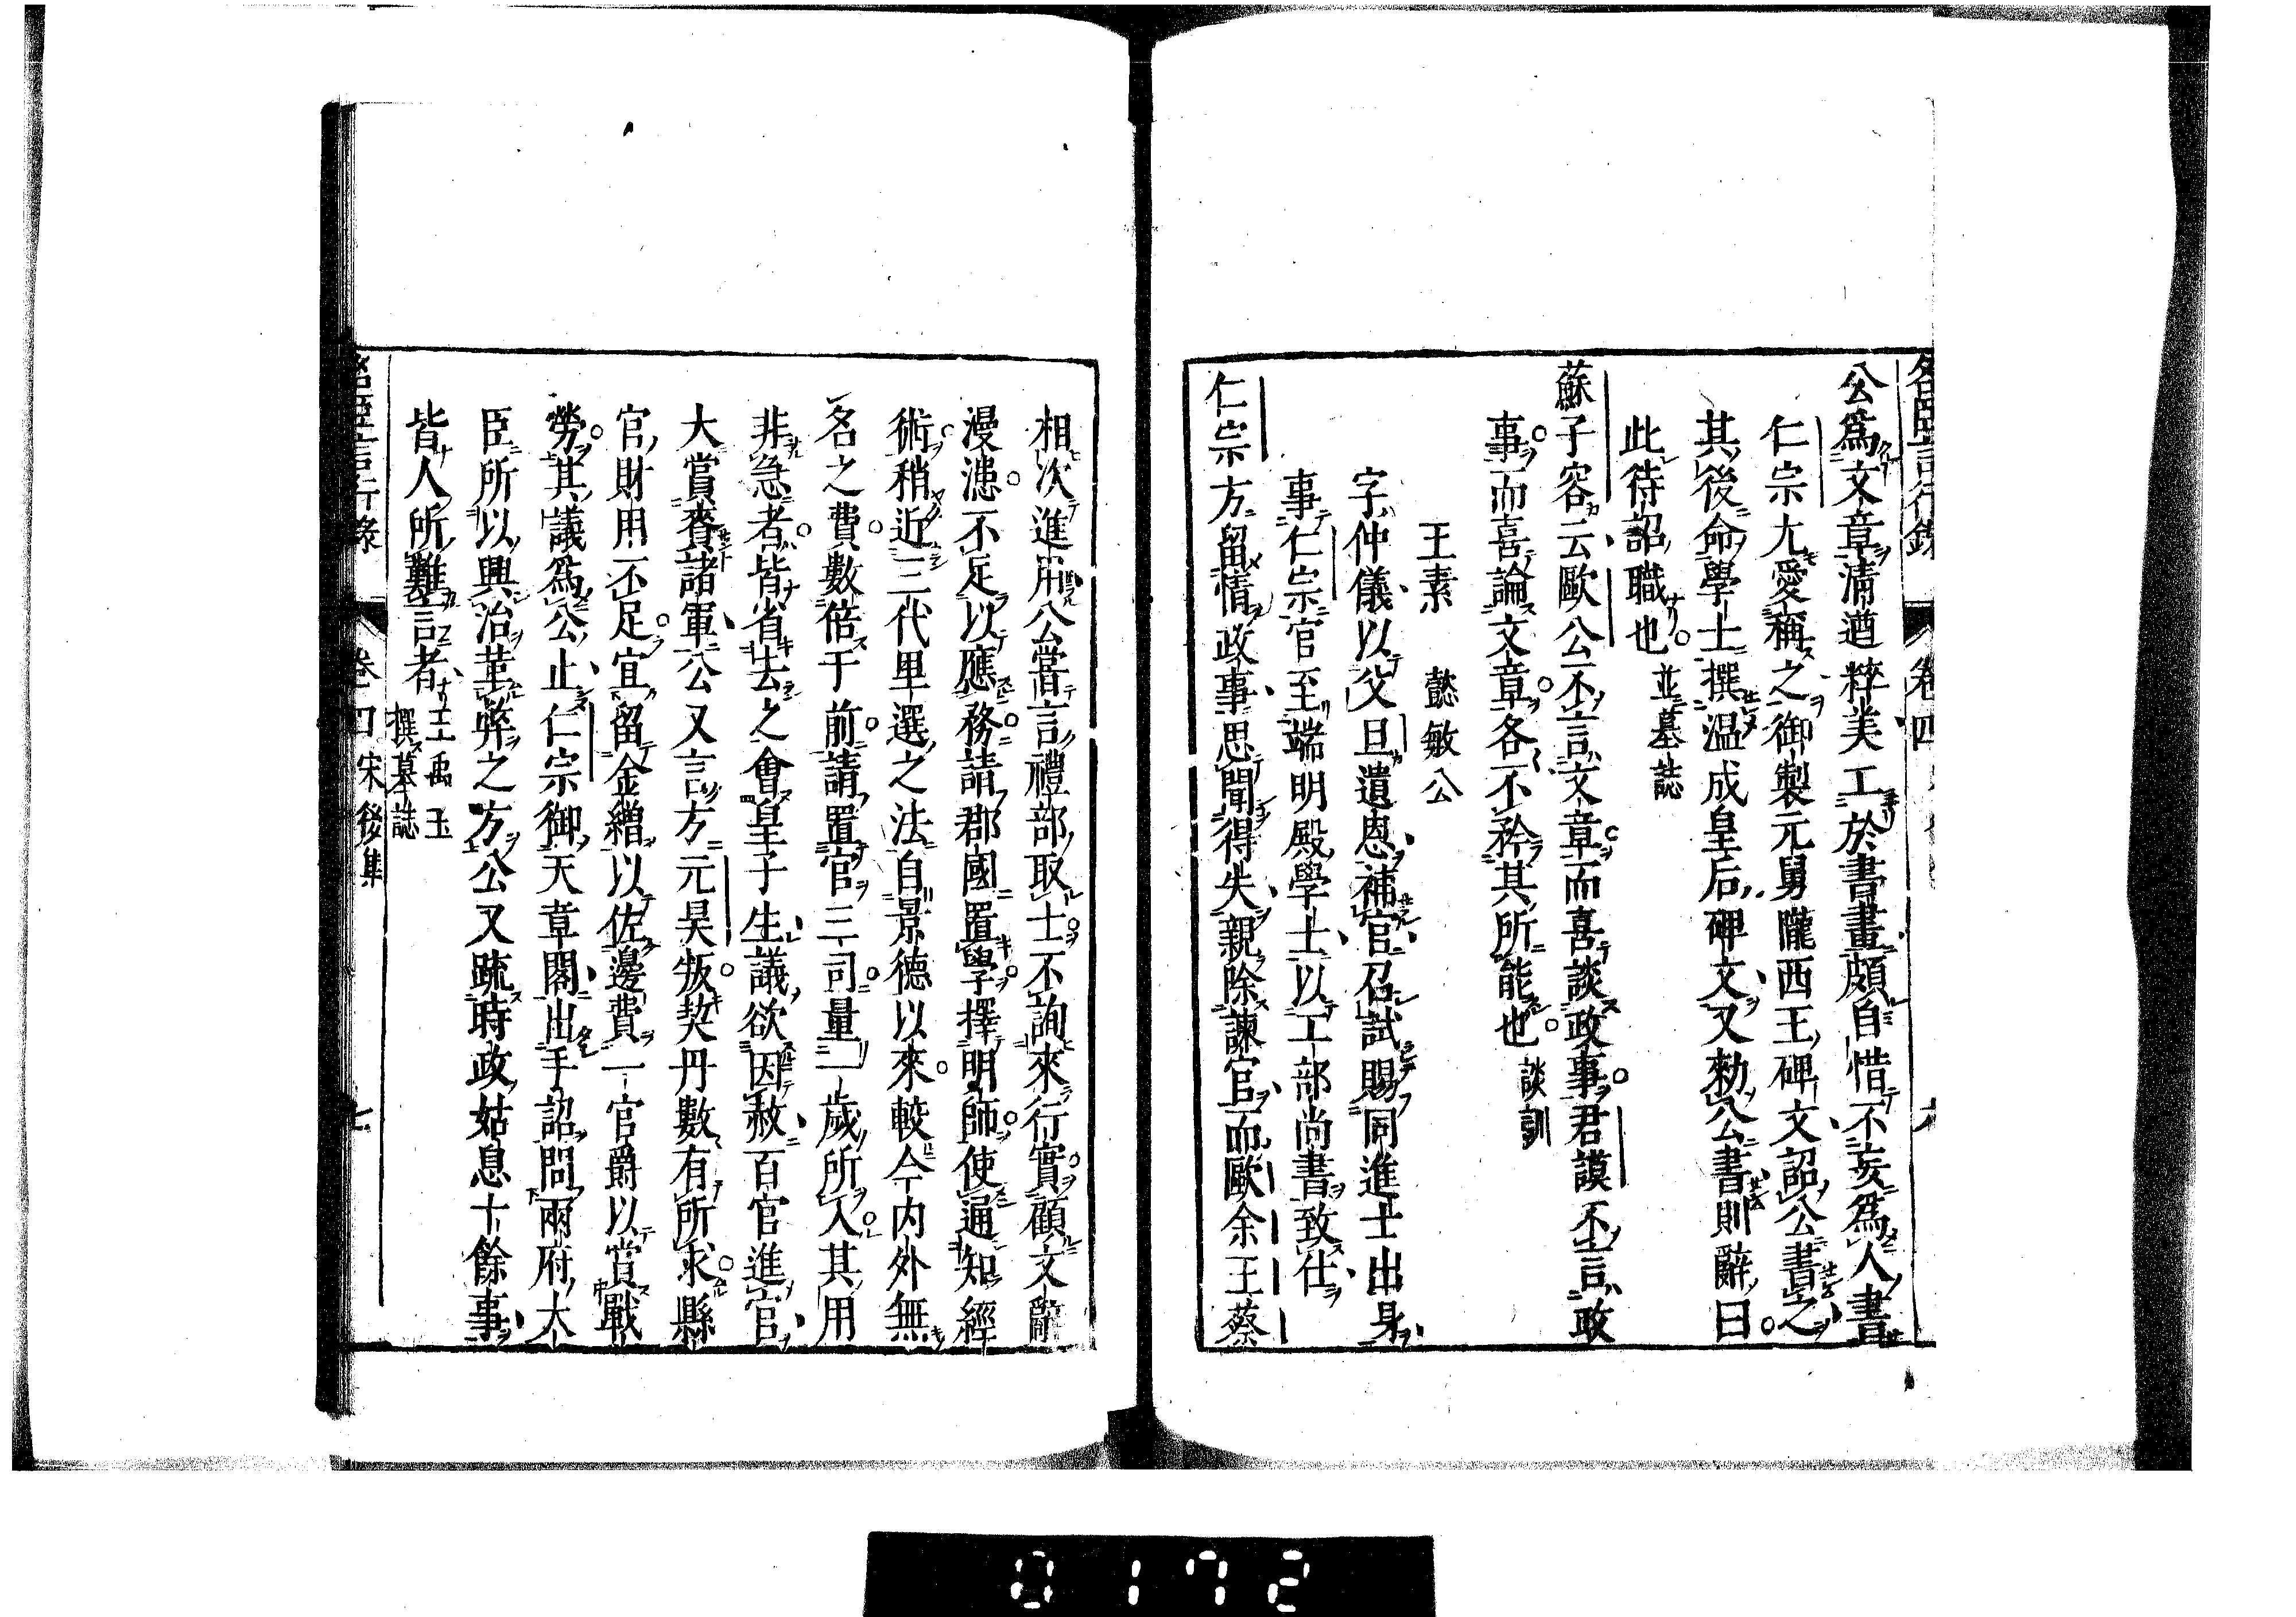 名臣言行錄 卷四
公爲文章清遒粹美工於書畫頗自惜不妄爲人書
仁宗尤愛稱之御製元舅隴西王碑文詔公書之
其後命學士撰温成皇后碑文又勑公書則辭曰
此待詔職也 並墓誌
蘇子容云歐公不言文章而喜談政事君謨不言政
事而喜論文章各不矜其所能也 談訓
王素 懿敏公
字仲儀以父旦遺恩補官召試賜同進士出身
事仁宗官至端明殿學士以工部尚書致仕
仁宗方留情政事思聞得失親除諫官而歐余王蔡
相次進用公嘗言禮部取士不詢來行實顧文辭
漫漶不足以應務請郡國置學擇明師使通知經
術稍近三代里選之法自景德以來較今内外無
名之費數倍于前請置官三司量一歲所入其用
非急者皆省去之會皇子生議欲因赦百官進官
大賞賚諸軍公又言方元昊叛契丹數有所求縣
官財用不足宜留金繒以佐邊費一官爵以賞戰
勞其議爲公止仁宗御天章閣出手詔問兩府大
臣所以興治革弊之方公又疏時政姑息十餘事
皆人所難言者 王禹玉
撰墓誌
名臣言行錄 卷四 宋後集 七
0172